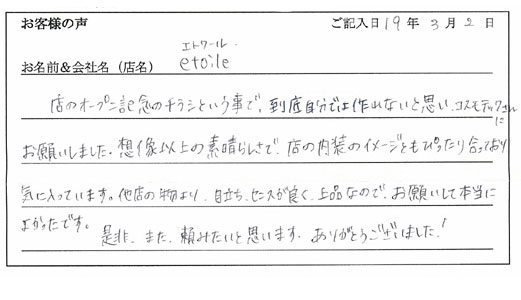 お客様の声
ご記入日 19年 3月 2日
エトワール
お名前&会社名（店名） etoile
店のオープン記念のチラシという事で、到底自分では作れないと思い、コスモテックさんに
お願いしました。想像以上の素晴らしさで、店の内装のイメージともぴったり合っており
気に入っています。他店の物より、目立ち、センスが良く、上品なので、お願いして本当に
よかったです。
是非、また、頼みたいと思います。ありがとうございました！